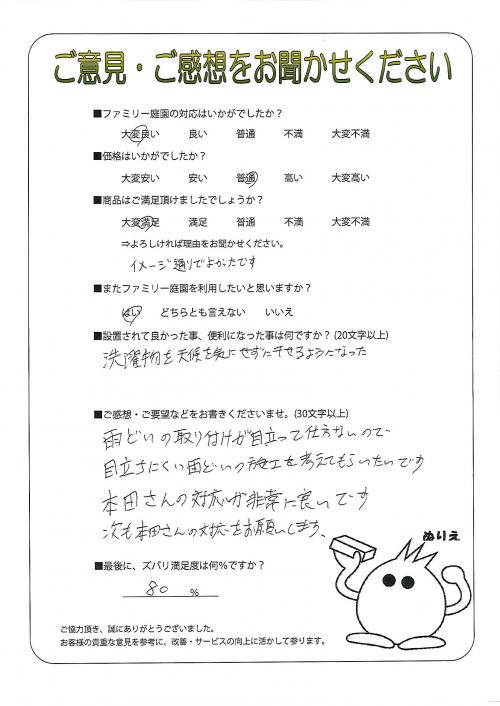 ご意見・ご感想をお聞かせください
■ファミリー庭園の対応はいかがでしたか？
大変良い 良い 普通 不満 大変不満
■価格はいかがでしたか？
大変安い 安い 普通 高い 大変高い
■商品はご満足頂けましたでしょうか？
大変満足 満足 普通 不満 大変不満
⇒よろしければ理由をお聞かせください。
イメージ通りでよかったです
■またファミリー庭園を利用したいと思いますか？
はい どちらとも言えない いいえ
■設置されて良かった事、便利になった事は何ですか？(20文字以上)
洗濯物を天候を気にせずに干せるようになった
■ご感想・ご要望などをお書きくださいませ。(30文字以上)
雨どいの取り付けが目立って仕方ないので、
目立ちにくい雨どいの施工を考えてもらいたいです
本田さんの対応が非常に良いです
次も本田さんの対応をお願いします。
ぬりえ
■最後に、ズバリ満足度は何％ですか？
80 ％
ご協力頂き、誠にありがとうございました。
お客様の貴重な意見を参考に、改善・サービスの向上に活かして参ります。